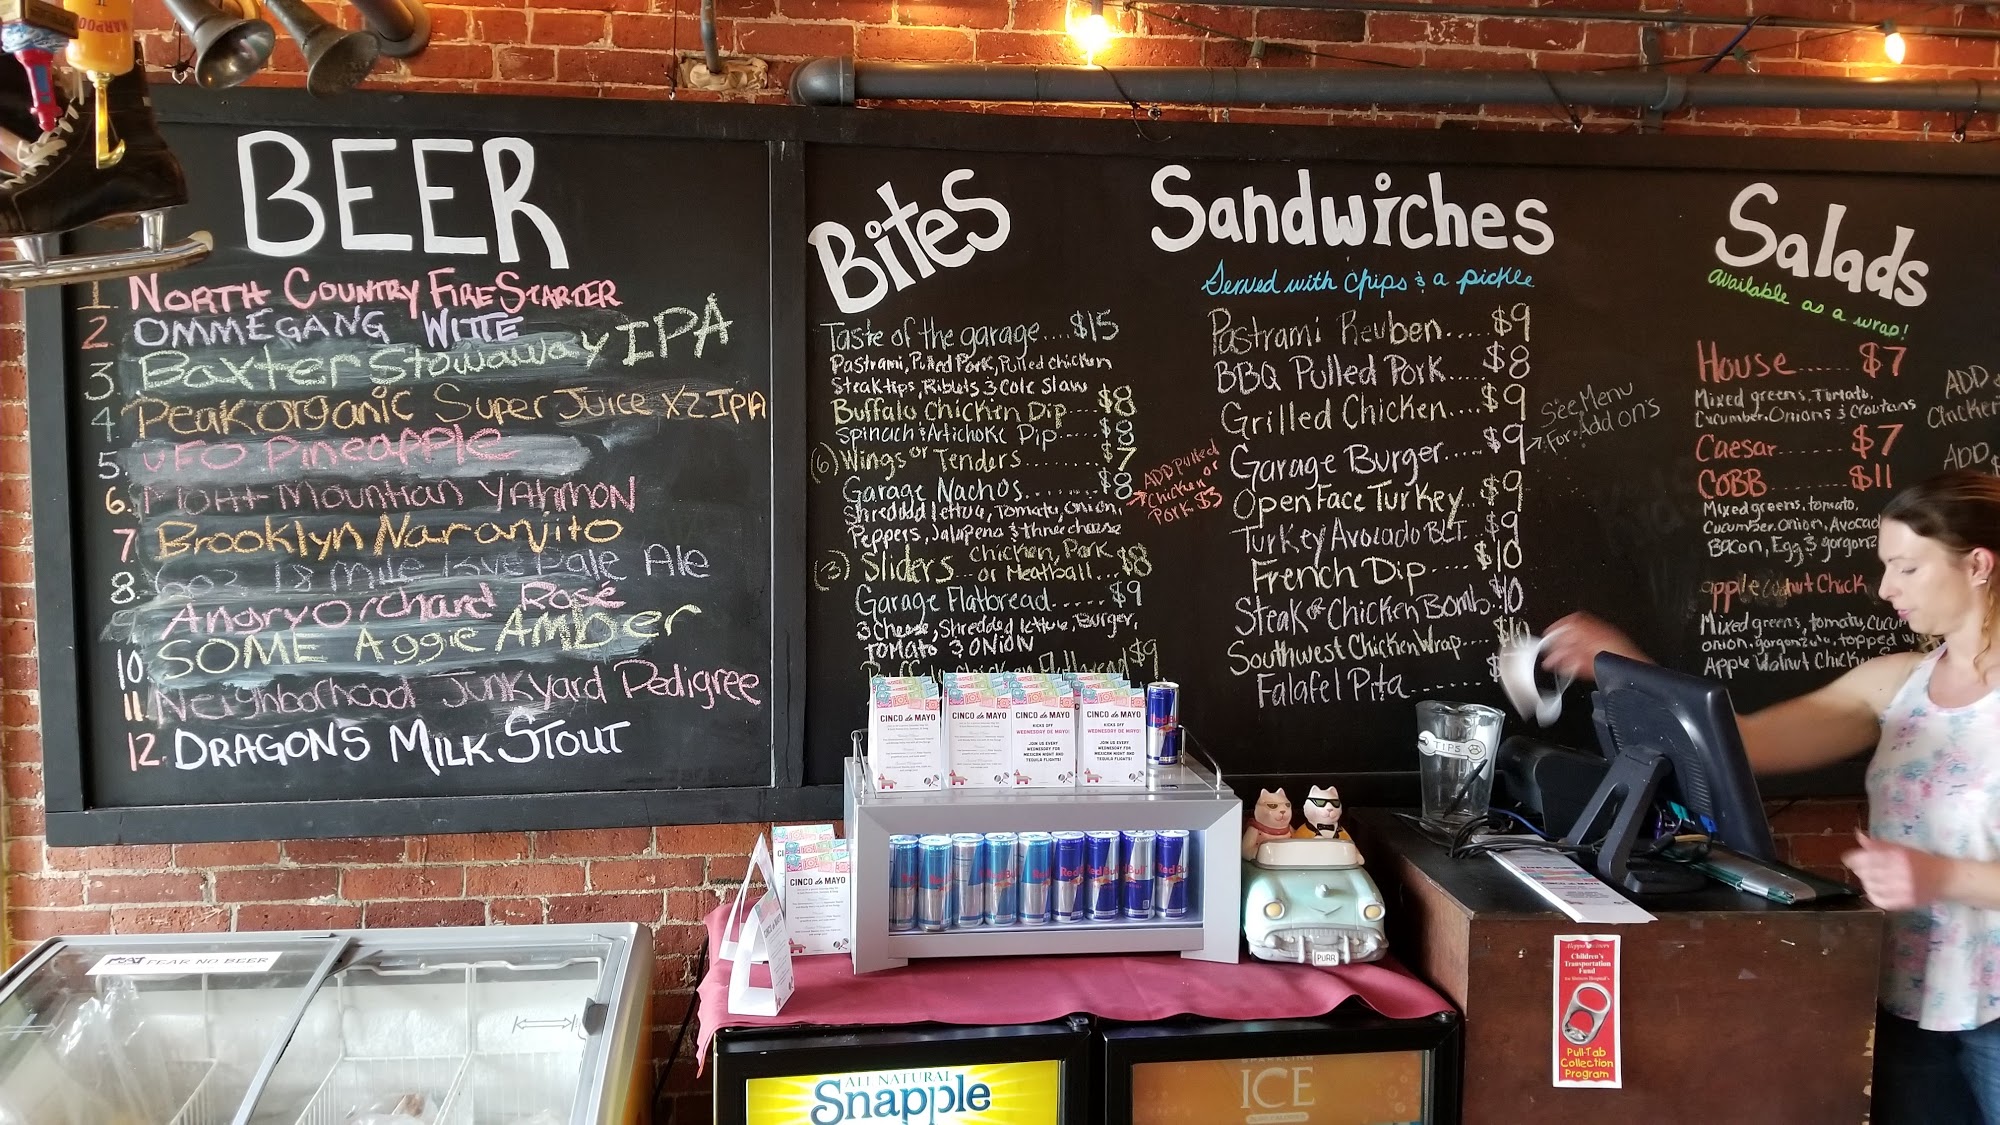 BEER
1. NORTH COUNTRY FIRE STARTER
2. OMMEGANG WITTE
3. Baxter Stowaway IPA
4. Peak organic Super Juice X2 IPA
5. UFO Pineapple
6. MOAT Mountian YAHMON
7. Brooklyn Naranjito
8. 603 18 Mile Rye Pale Ale
9. Angry Orchard Rosé
10. SOME Aggie AMBER
11. Neighborhood Junkyard Pedigree
12. DRAGONS MILK STOUT
Bites
Taste of the garage....$15
Pastrami, Pulled Pork, Pulled Chicken
Steak tips, Riblets & Cole Slaw
Buffalo Chicken Dip...$8
Spinach & Artichoke Dip.....$8
(6) Wings or Tenders........$7
Garage Nachos........$8
Shredded lettuce, Tomato, Onion,
Peppers, Jalapeno & three cheese
ADD Pulled
or
Chicken
Pork $3
(3) Sliders... chicken, Pork
or Meatball...$8
Garage Flatbread......$9
3 Cheese, Shredded lettuce, Burger,
TOMATO & ONION
Buffalo Chicken Flatbread $9
Sandwiches
Served with chips & a pickle
Pastrami Reuben.....$9
BBQ Pulled Pork.....$8
Grilled Chicken....$9
Garage Burger....$9
See Menu
For Add on's
Open Face Turkey...$9
Turkey Avocado BLT...$9
French Dip....$10
Steak or Chicken Bomb..$10
Southwest Chicken Wrap....$10
Falafel Pita.......$
Salads
available as a wrap!
House......$7
Mixed greens, Tomato,
Cucumber, Onions & Croutans
Caesar......$7
COBB........$11
Mixed greens, tomato,
Cucumber, onion, Avocad
Bacon, Egg & gorgonz
apple walnut Chick
Mixed greens, tomato, cucum
onion, gorgonzola, topped w
Apple Walnut Chicken
ADD
Chicken
ADD $
CINCO de MAYO
CINCO de MAYO
CINCO de MAYO
KICKS OFF
WEDNESDAY MAYO!
JOIN US EVERY
WEDNESDAY FOR
MEXICAN NIGHT AND
TEQUILA FLIGHTS!
CINCO de MAYO
KICKS OFF
WEDNESDAY MAYO!
JOIN US EVERY
WEDNESDAY FOR
MEXICAN NIGHT AND
TEQUILA FLIGHTS!
CINCO de MAYO
Red Bull
TIPS
PURR
FEAR NO BEER
ALL NATURAL
Snapple
SPARKLING
ICE
Aleppo Shriners
Children's
Transportation
Fund
Pull-Tab
Collection
Program
HARPOON